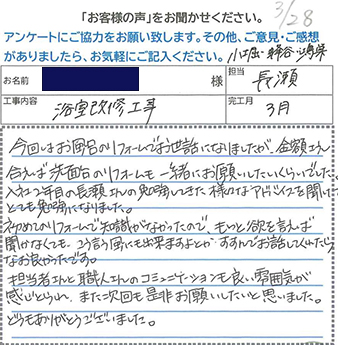 3/28
「お客様の声」をお聞かせください。
アンケートにご協力をお願い致します。その他、ご意見・ご感想
がありましたら、お気軽にご記入ください。
お名前 様 担当 長瀬
工事内容 浴室改修工事 完工月 3月
今回はお風呂のリフォームでお世話になりましたが、金額さえ
合えば洗面台のリフォームも一緒にお願いしたいくらいでした。
入社2年目の長瀬さんの勉強してきた様々なアドバイスを聞けて
とても勉強になりました。
初めてのリフォームで知識がなかったので、もっと欲を言えば
聞かなくても、こう言う風にも出来ますよとか すすんでお話しくれたら
なお良かったです。
担当者さんと職人さんのコミュニケーションも良い雰囲気が
感じとられ、また次回も是非お願いしたいと思いました。
どうもありがとうございました。